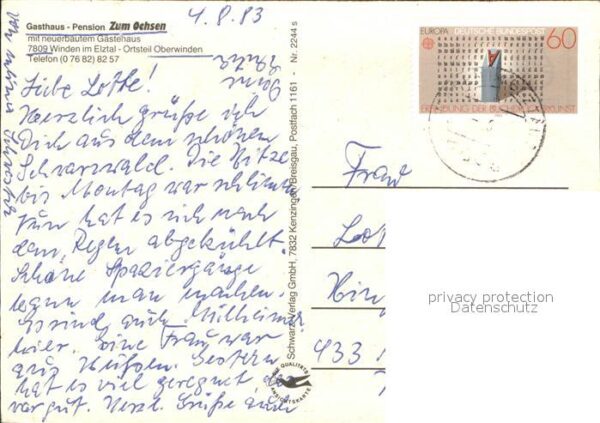 4.8.83
Gasthaus - Pension Zum Ochsen
mit neuerbautem Gästehaus
7809 Winden im Elztal - Ortsteil Oberwinden
Telefon (0 76 82) 82 57
Liebe Lotte!
Herzlich grüße ich
Dich aus dem schönen
Schwarzwald. Die Hitze
bis Montag war schlimm
Nun hat es sich nach
dem Regen abgekühlt.
Schöne Spaziergänge
kann man machen.
Es sind auch Mülheimer
hier. Eine Frau war
aus Heißen. Gestern
hat es viel geregnet,
war gut. Herzl. Grüße auch
Schwarz-Verlag GmbH, 7832 Kenzingen/Breisgau, Postfach 1161 - Nr. 2244 s
DIE QUALITÄTS
ANSICHTSKARTE
EUROPA DEUTSCHE BUNDESPOST 60
ERFINDUNG DER BUCHDRUCKERKUNST
Frau
Lot
433
privacy protection
Datenschutz